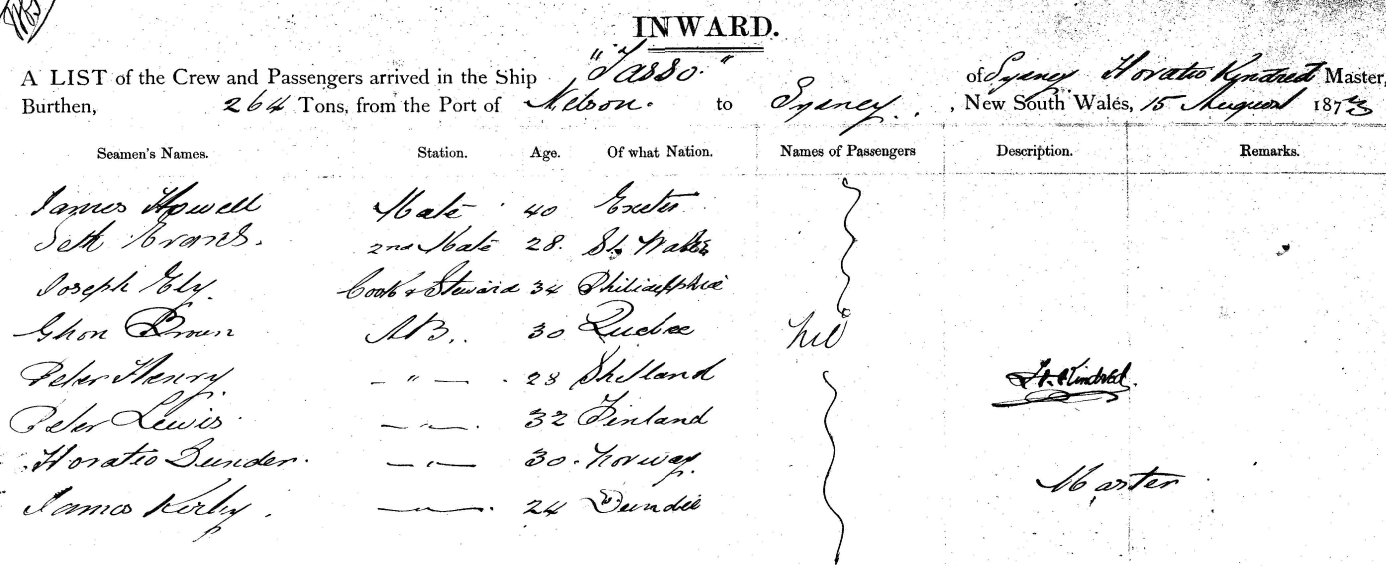 INWARD.
A LIST of the Crew and Passengers arrived in the Ship "Tasso." of Sydney Horatio Kyndred Master,
Burthen, 264 Tons, from the Port of Nelson. to Sydney. , New South Wales, 15 August 1873
Seamen's Names. Station. Age. Of what Nation. Names of Passengers Description. Remarks.
James Howell Mate 40 Exeter
Seth 2nd Mate 28.
Joseph Ely. Cook & Steward 34 Philidephia
Ghon Brown A.B. 30 Quebec nil
Peter Henry. — " — 28 Shetland H. Kindred.
Peter Lewis — " — 32 Finland
Horatio Bunder. — " — 30. Norway.
Master
James Kirby. — " — 24 Dundee